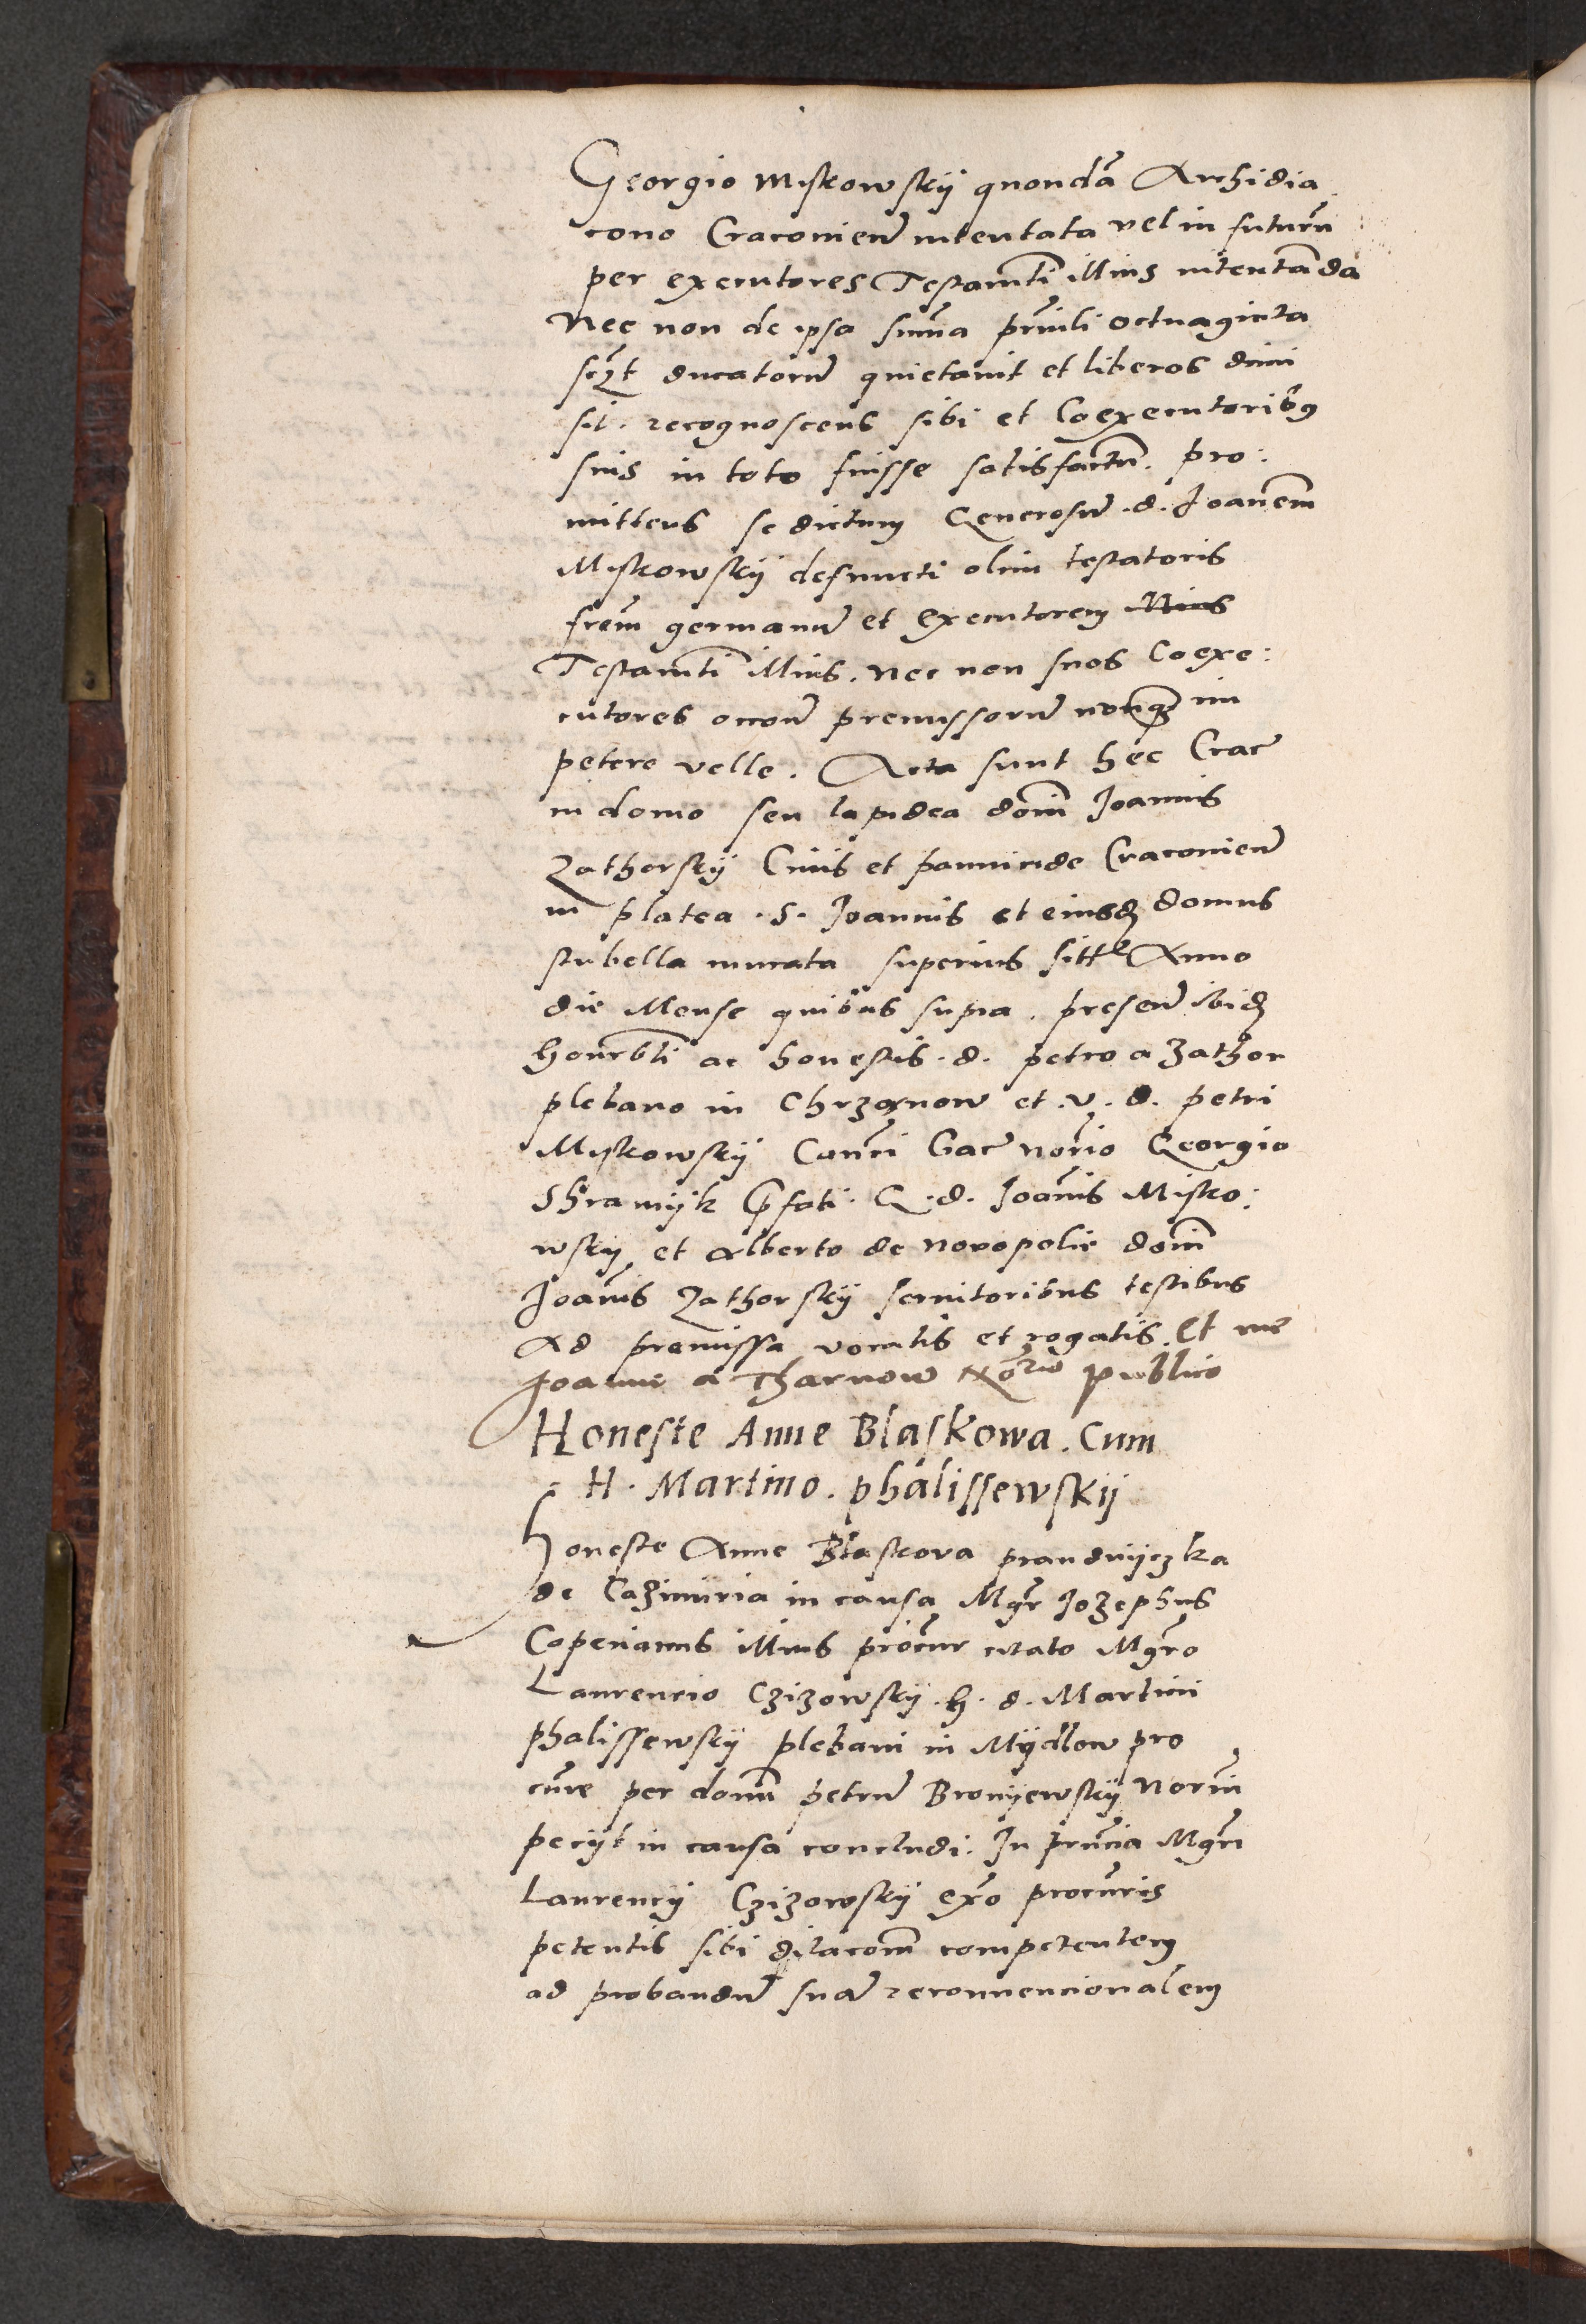 Georgio Miskowskÿ quondā Archidia
cono Cracovien̄ intentata vel in futurū
per executores Testamt̄i illius intentāda
Nec non de ipsa sum̄a prin̄li octuaginta
sc̄ꝫt ducatorū quietavit et liberos dimi
sit. recognoscens sibi et Coexecutoribꝰ
suis in toto fuisse satisfactū. pro:
mittens se dictum Generosū .d. Joanēm
Miskowskÿ defuncti olim testatoris
frēm germanū et executorem illius
Testamt̄i illius. nec non suos Coexe:
cutores occoē premissorū nonꝙ̄ im
petere velle. Acta sunt hec Crac̄
in domo seu lapidea don̄i Joannis
Zathorskÿ Civis et pannicide Cracovien̄
in platea .S. Joannis et eiusdꝫ domus
stubella murata superius sitt̄ Anno
die Mense quibus supra. presen̄ ibidꝫ
honorbl̄i ac honestis .d. petro a Zathor
plebano in Chrzanow et .v. d. petri
Miskowskÿ Can̄ci Crac̄ nor̄io Georgio
Shramÿk p̄fati. G. d. Joān̄is Misko:
wskÿ et Alberto de novopolie don̄i
Joān̄is Zathorskÿ servitoribus testibus
Ad premissa vocatis et rogatis. Et me
Joanne a Tharnow No͞rio publico
Honeste Anne Blaskowa. Cum
H. Martino. phalissewskÿ
honeste Anne Blaskova prandnÿczka
de Cazimiria in causa Mgr̄ Jozephus
Coperianus illius procur̄ citato Mgr̄o
Laurencio Czizowskÿ .h. d. Martini
phalissewskÿ plebani in Mÿdlow pro
cur̄e per donū petrū Bronÿewskÿ Norīū
pecÿt in causa concludi. In prn̄cia Mgr̄i
Laurencÿ Czizowskÿ ex̄o procur̄is
petentis sibi dilacoēm competentem
ad probandū suā reconvencionalem